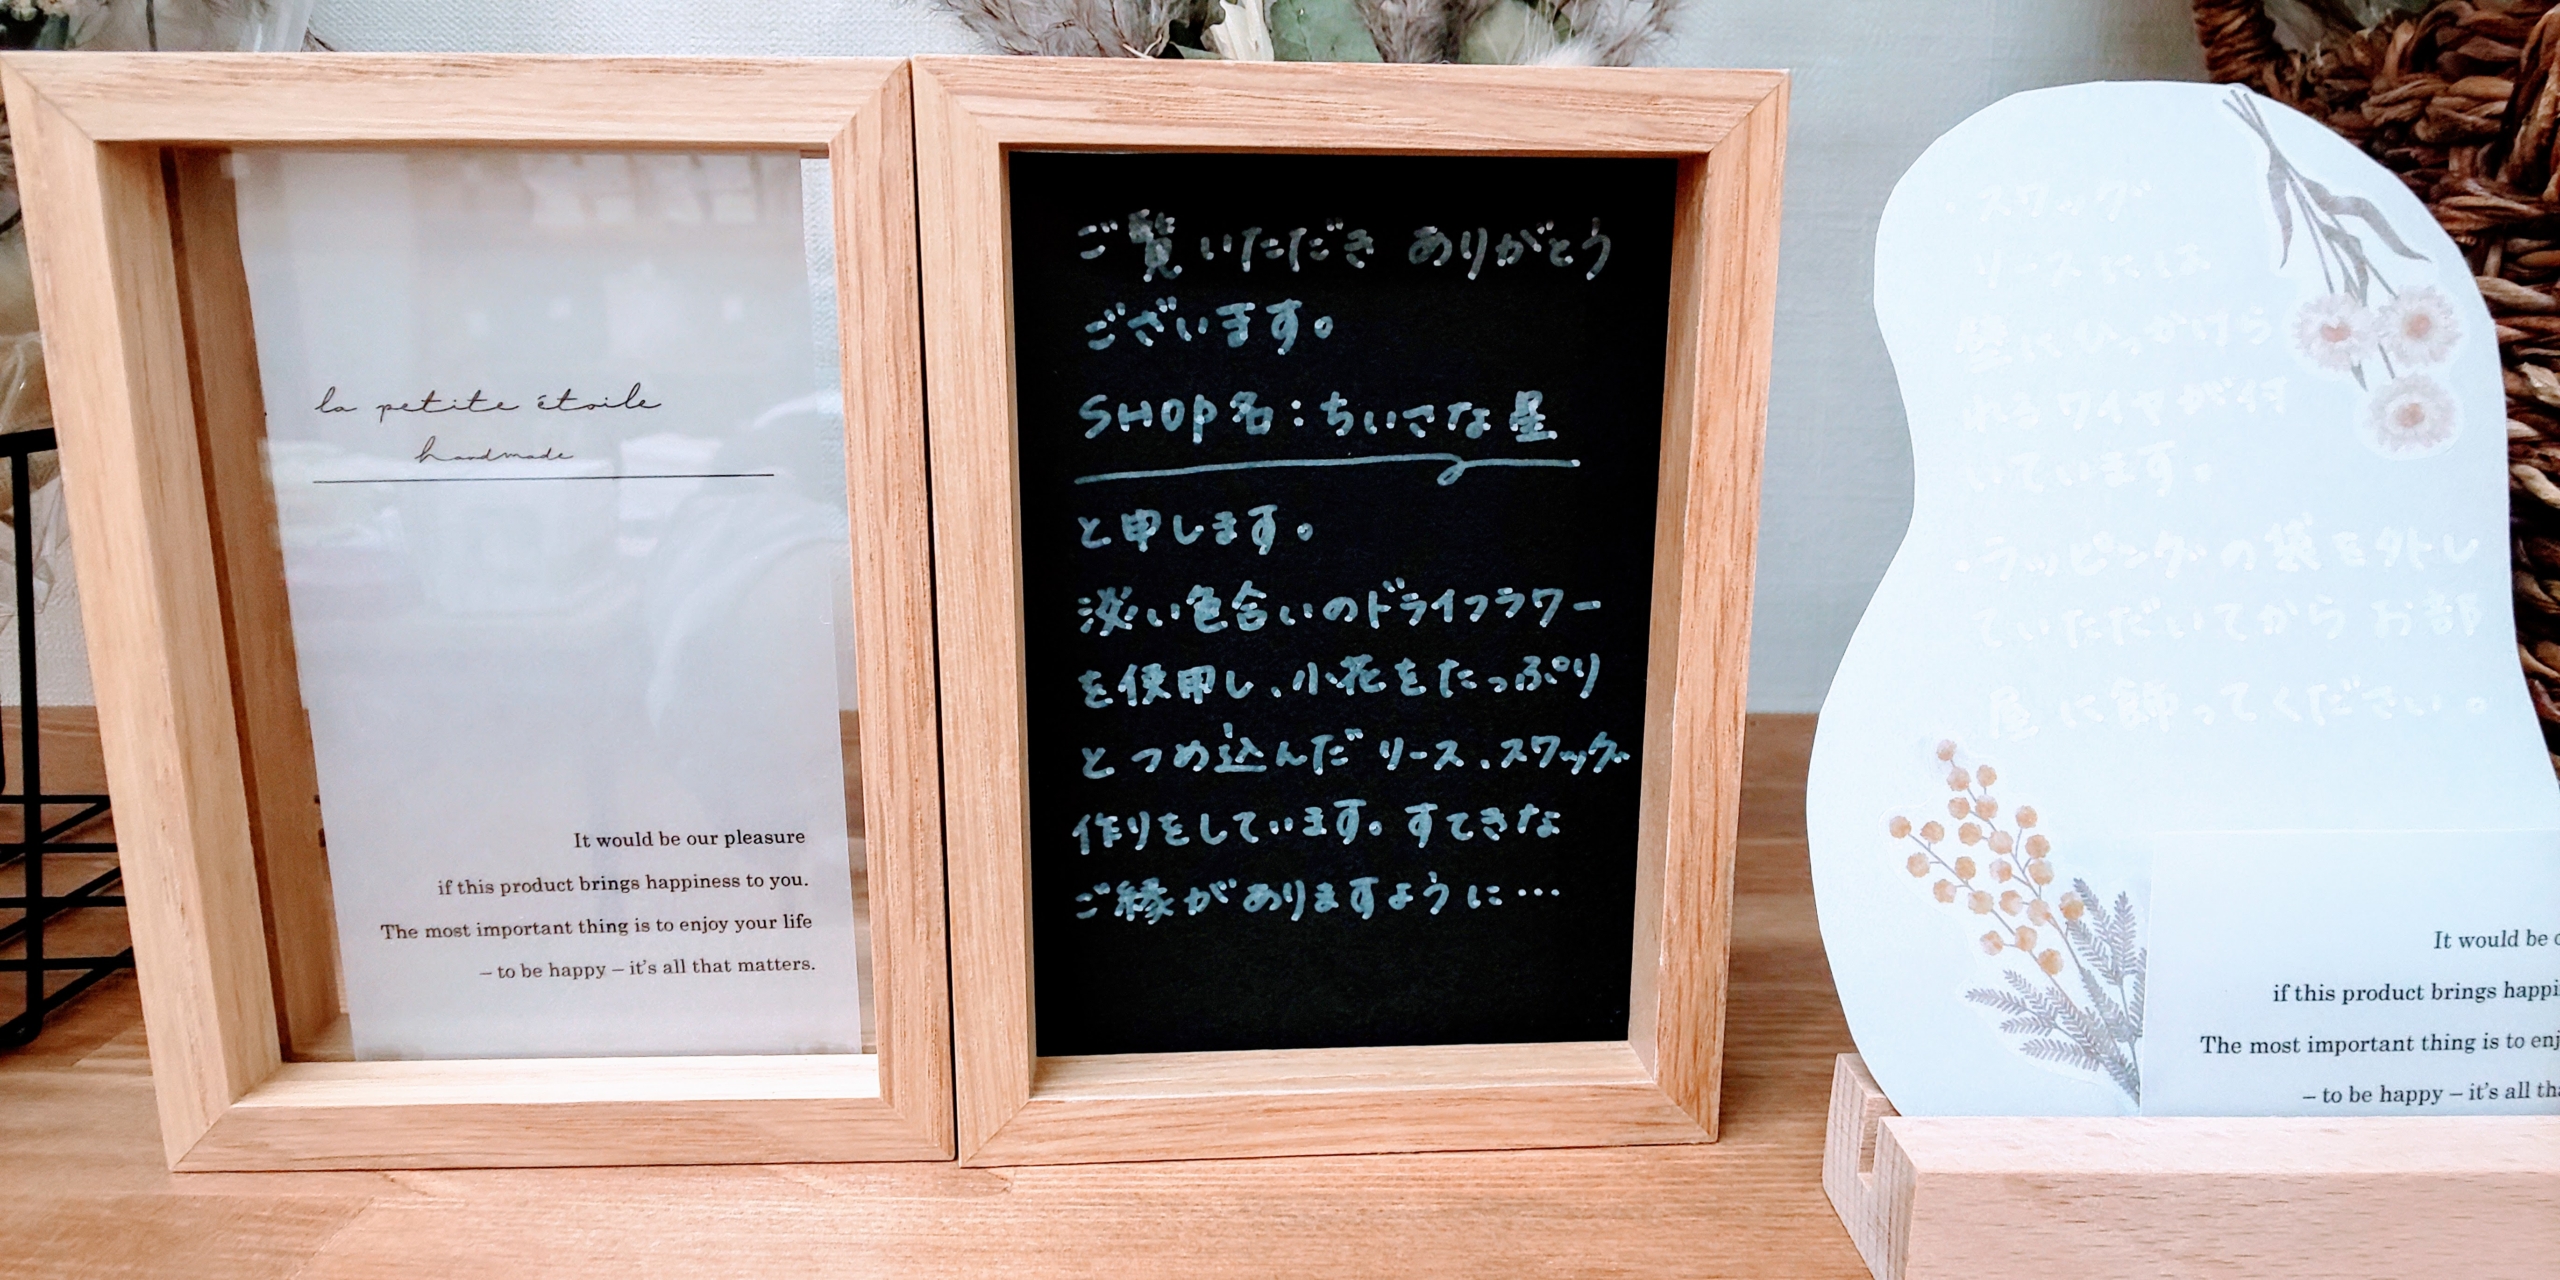 la petite étoile
handmade
It would be our pleasure
if this product brings happiness to you.
The most important thing is to enjoy your life
– to be happy – it's all that matters.
ご覧いただき ありがとう
ございます。
SHOP名：ちいさな星
と申します。
淡い色合いのドライフラワー
を使用し、小花をたっぷり
とつめ込んだ リース、スワッグ
作りをしています。すてきな
ご縁がありますように…
・スワッグ
リースには
壁にひっかけら
れるワイヤが付
いています。
・ラッピングの袋を外し
ていただいてから お部
屋に飾ってください。
It would be
if this product brings happi
The most important thing is to enj
– to be happy – it's all tha